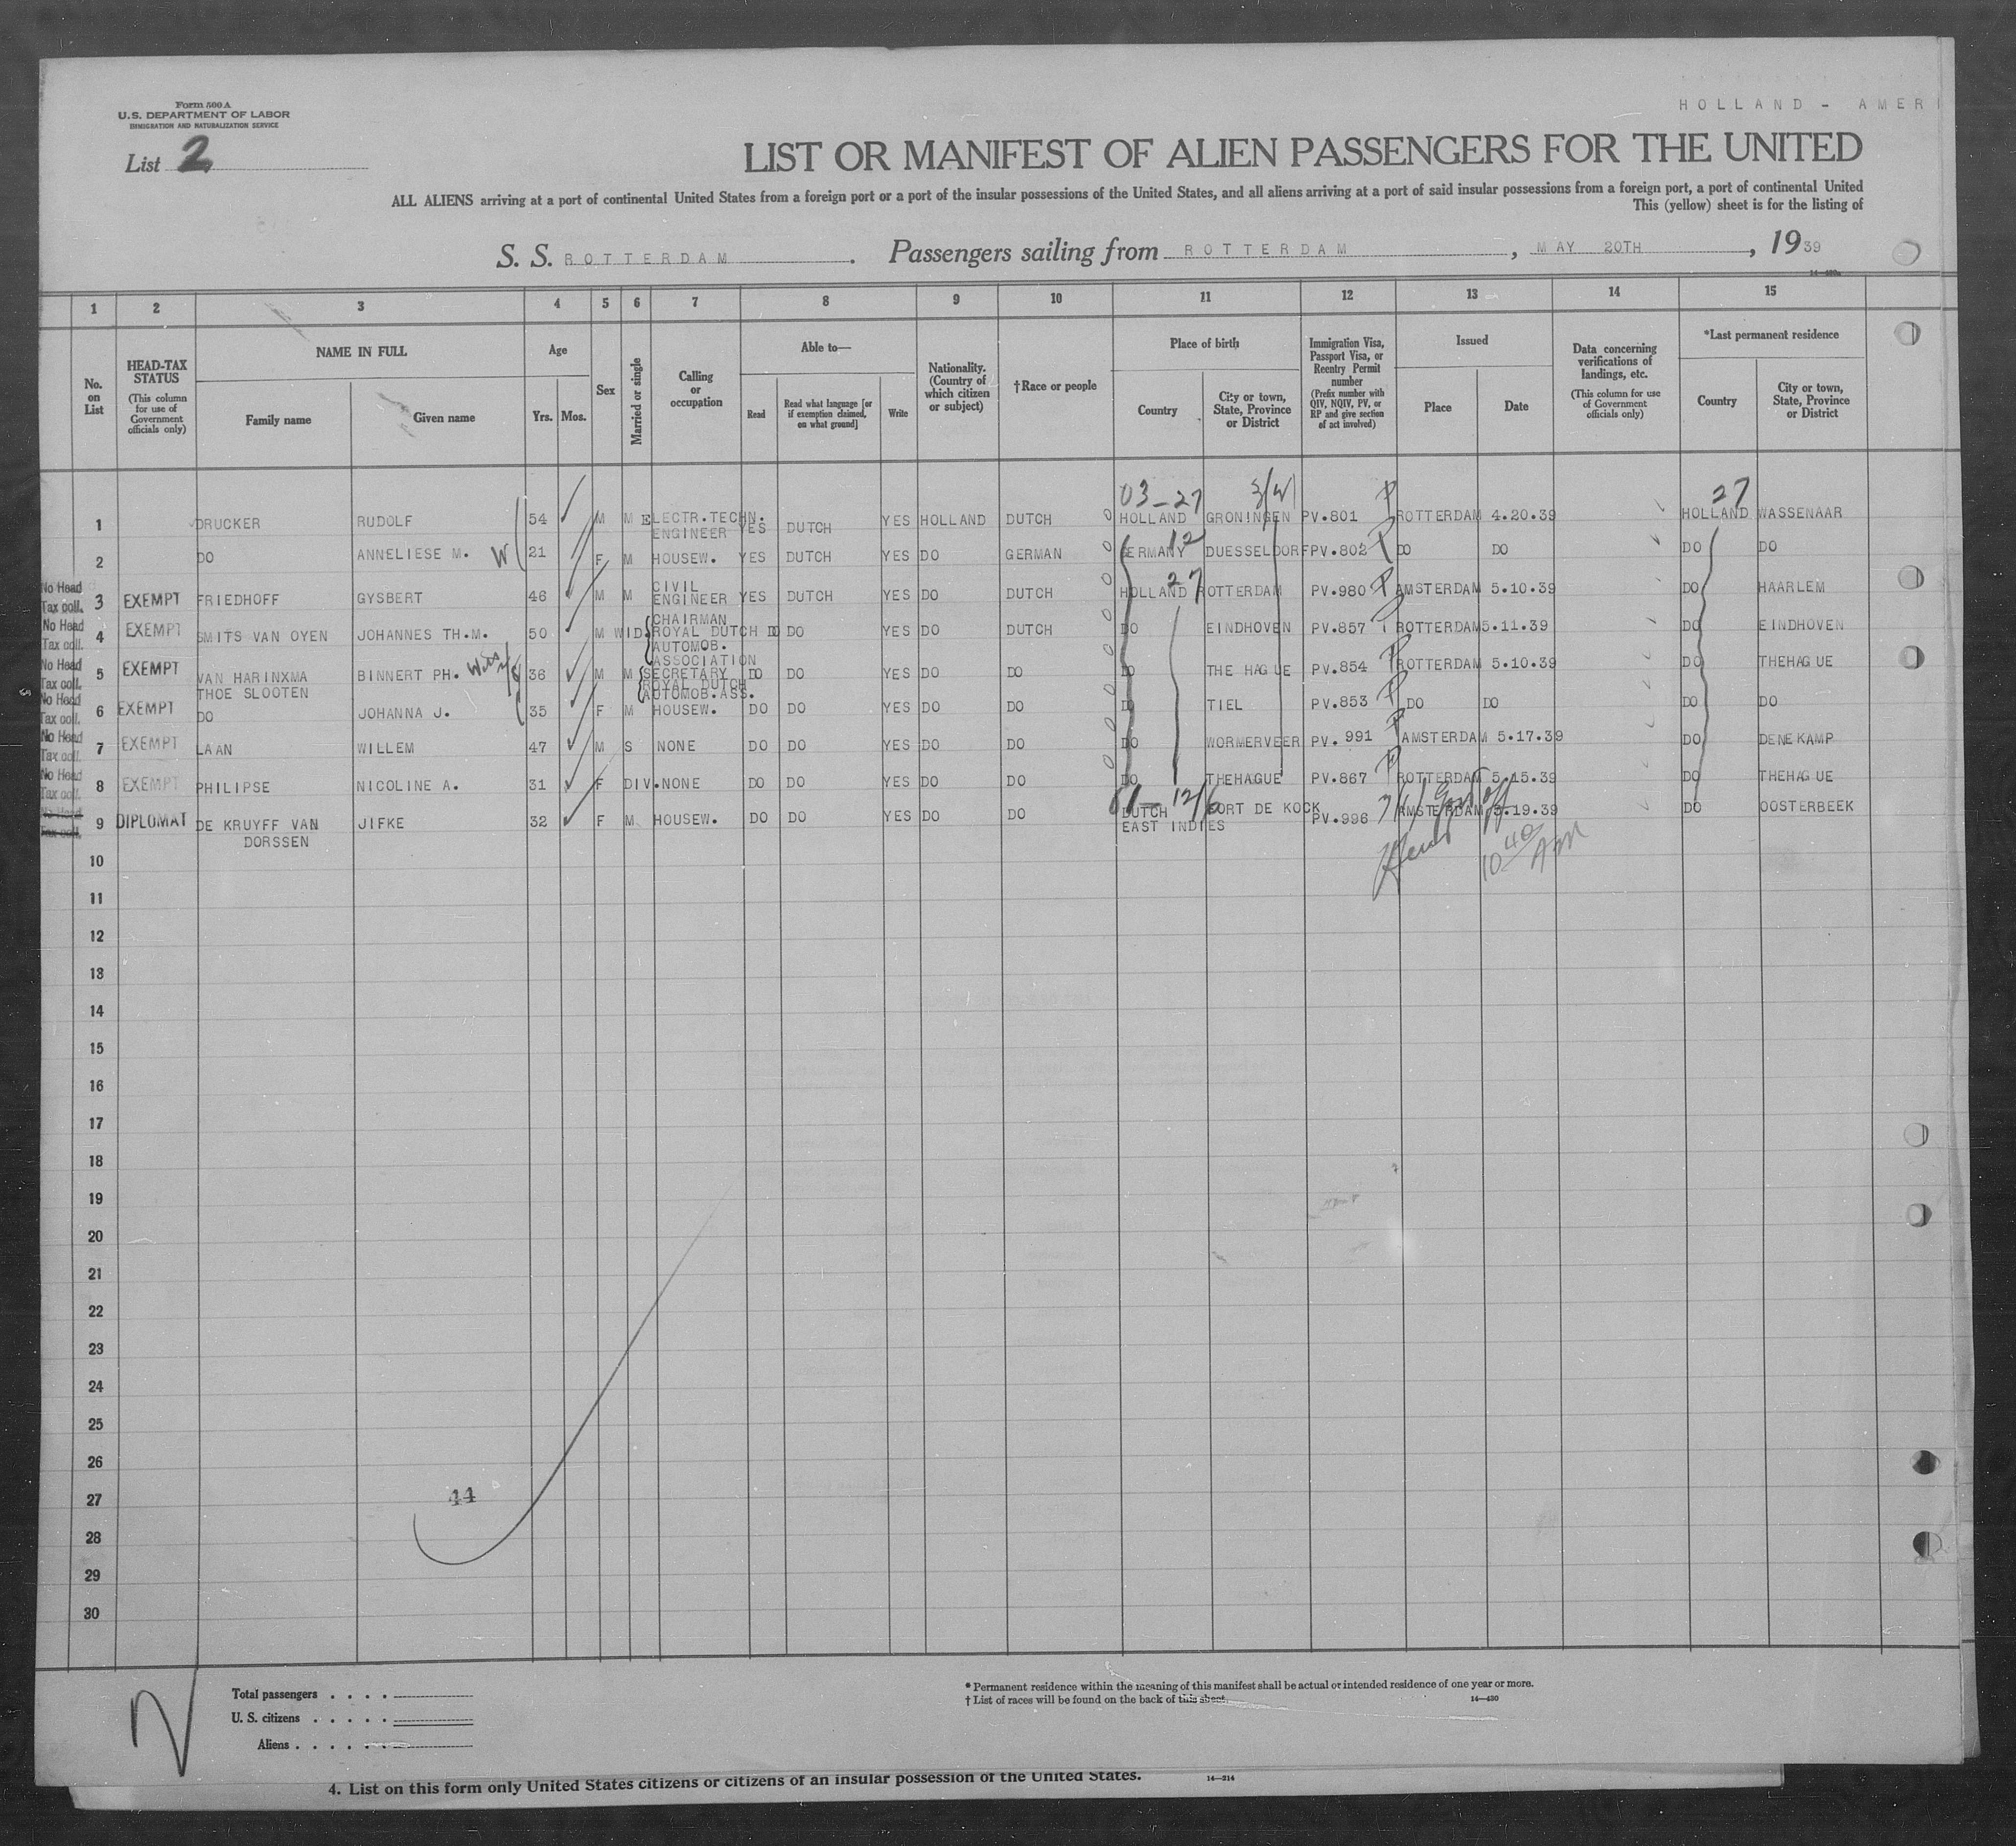 Form 500 A
U.S. DEPARTMENT OF LABOR
IMMIGRATION AND NATURALIZATION SERVICE
HOLLAND - AMERI
List 2
LIST OR MANIFEST OF ALIEN PASSENGERS FOR THE UNITED
ALL ALIENS arriving at a port of continental United States from a foreign port or a port of the insular possessions of the United States, and all aliens arriving at a port of said insular possessions from a foreign port, a port of continental United
This (yellow) sheet is for the listing of
S. S. ROTTERDAM . Passengers sailing from ROTTERDAM , MAY 20TH , 1939
1 2 3 4 5 6 7 8 9 10 11 12 13 14 15
No. on List
HEAD-TAX STATUS (This column for use of Government officials only)
NAME IN FULL
Family name Given name
Age
Yrs. Mos.
Sex
Married or single
Calling or occupation
Able to—
Read Read what language [or if exemption claimed, on what ground] Write
Nationality. (Country of which citizen or subject)
†Race or people
Place of birth
Country City or town, State, Province or District
Immigration Visa, Passport Visa, or Reentry Permit number (Prefix number with QIV, NQIV, PV, or RP and give section of act involved)
Issued
Place Date
Data concerning verifications of landings, etc. (This column for use of Government officials only)
*Last permanent residence
Country City or town, State, Province or District
03-27 27
1 DRUCKER RUDOLF 54 M M ELECTR.TECHN. ENGINEER YES DUTCH YES HOLLAND DUTCH HOLLAND GRONINGEN PV.801 ROTTERDAM 4.20.39 HOLLAND WASSENAAR
2 DO ANNELIESE M. W 21 F M HOUSEW. YES DUTCH YES DO GERMAN GERMANY 12 DUESSELDORF PV.802 DO DO DO DO
No Head Tax coll. 3 EXEMPT FRIEDHOFF GYSBERT 46 M M CIVIL ENGINEER YES DUTCH YES DO DUTCH HOLLAND 27 ROTTERDAM PV.980 AMSTERDAM 5.10.39 DO HAARLEM
No Head Tax coll. 4 EXEMPT SMITS VAN OYEN JOHANNES TH.M. 50 M WID. CHAIRMAN ROYAL DUTCH AUTOMOB. ASSOCIATION DO DO YES DO DUTCH DO EINDHOVEN PV.857 ROTTERDAM 5.11.39 DO EINDHOVEN
No Head Tax coll. 5 EXEMPT VAN HARINXMA THOE SLOOTEN BINNERT PH. 36 M M SECRETARY ROYAL DUTCH AUTOMOB.ASS. DO DO YES DO DO DO THE HAGUE PV.854 ROTTERDAM 5.10.39 DO THEHAGUE
No Head Tax coll. 6 EXEMPT DO JOHANNA J. 35 F M HOUSEW. DO DO YES DO DO DO TIEL PV.853 DO DO DO DO
No Head Tax coll. 7 EXEMPT LAAN WILLEM 47 M S NONE DO DO YES DO DO DO WORMERVEER PV.991 AMSTERDAM 5.17.39 DO DENEKAMP
No Head Tax coll. 8 EXEMPT PHILIPSE NICOLINE A. 31 F DIV. NONE DO DO YES DO DO DO THEHAGUE PV.867 ROTTERDAM 5.15.39 DO THEHAGUE
No Head Tax coll. 9 DIPLOMAT DE KRUYFF VAN DORSSEN JIFKE 32 F M HOUSEW. DO DO YES DO DO DUTCH EAST INDIES FORT DE KOCK PV.996 AMSTERDAM 5.19.39 DO OOSTERBEEK
10 10 40 AM
11
12
13
14
15
16
17
18
19
20
21
22
23
24
25
26
27
44
28
29
30
Total passengers . . . .
U. S. citizens . . . . .
Aliens . . . . . .
* Permanent residence within the meaning of this manifest shall be actual or intended residence of one year or more.
† List of races will be found on the back of this sheet.
14—430
4. List on this form only United States citizens or citizens of an insular possession of the United States.
14—214